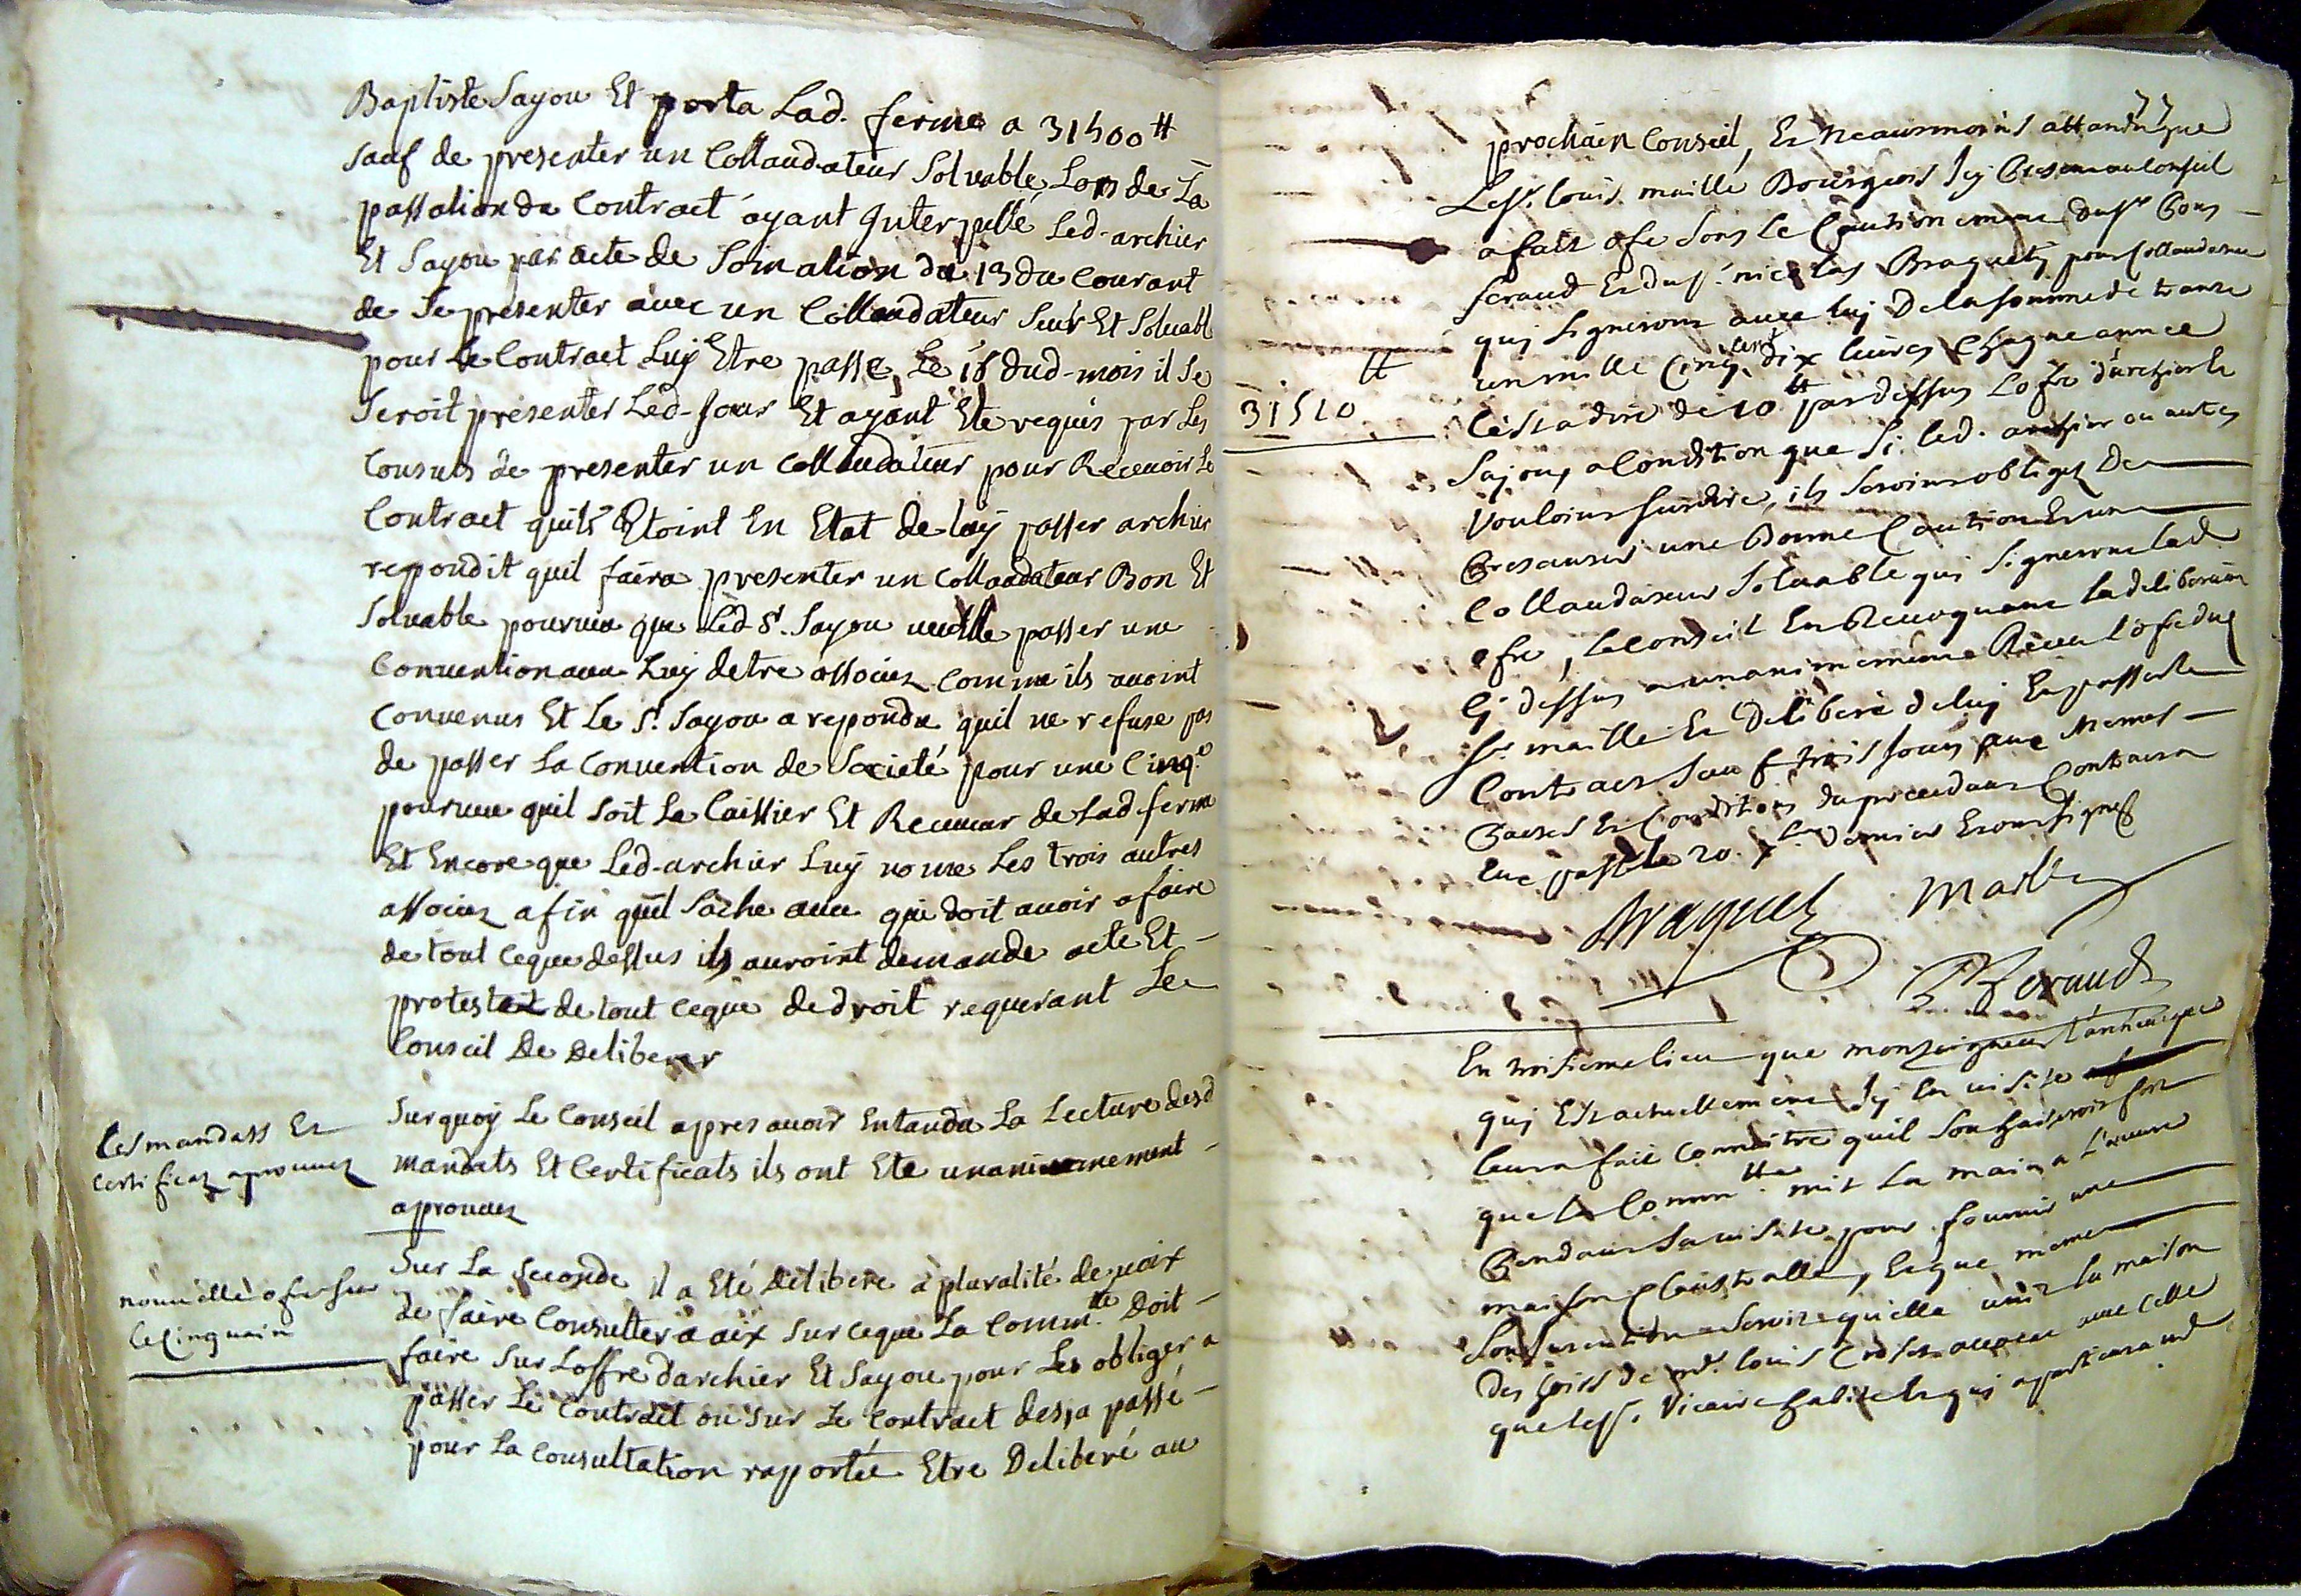 Baptiste Sayou Et porta Lad. ferme a 31500 tt
sauf de presenter un Collaudateur Soluable Lors de La
passation du Contract ayant Interpellé Led-archier
Et Sayou par acte de Somation du 13 du Courant
de Se presenter avec un Collaudateur Seur Et Soluabl
pour Le Contract Luy Etre passé, Le 18 dud-mois il Se
Seroit presenter Led-Jour Et ayant Ete requis par Les
Consuls de presenter un Collaudateur pour Recevoir Le
Contract quils Etoint En Etat de luy passer archier
repondit quil faira presenter un Collaudateur Bon Et
Soluable pourveu que Led Sr. Sayou veuille passer une
Convention avec Luy detre associez comme ils avoint
Convenus Et Le Sr. Sayou a repondu quil ne refuse pas
de passer La Convention de Societé pour une Cinqe
pourveu quil soit Le Caissier Et Receveur de Lad ferme
Et Encore que Led-archier Luy nome Les trois autres
associez afin quil Sache avec qui doit avoir afaire
de tout ceque dessus ils auroint demande acte Et
protesté de tout ceque de droit requerant Le
Conseil De Deliberer
Les mandats Et
Certificatz aprouvez
Sur quoy Le Conseil apres avoir Entandu La Lecture desd
mandats Et Certificats ils ont Ete unanimement
aprouvez
nouvelle ofre sur
le Cinquain
Sur La Seconde il a Eté Deliberé a pluralité de voix
de faire Consulter a aix sur ceque La Commté. Doit
faire sur Loffre darchier Et Sayou pour Les obliger a
passer Le Contract ou sur Le Contract desja passé
pour La Consultation raportée Etre Deliberé au
77
prochain Conseil, Et neaumoins attandu que
Le Sr. louis maille Bourgeois Icy Present au Conseil
a fait ofre sous le Cautionnement du Sr Pons
feraud Et du Sr. nicolas Braquety pour Collaudateur
quy Signeront avec luy De la somme de trante
un mille Cinq cent dix livres Chaque année
31510 tt
Cest a dire de 10 tt par dessus Lofre d'archier Et
Sajou, a Condition que Si led. archier ou autres
Vouloint surdire, ils Seroint obligez De
Presanter une Bonne Caution Et un
Collaudateur Soluable qui Signeront lad
ofre, le Conseil En Revoquant la deliberation
Cy dessus a unanimement Receu l'ofre dud
Sr maille Et Deliberé de luy En passer le
Contract Sauf trois jours aux mesmes
Pactes Et Conditions du precedant Contract
Luc passé le 20 7bre Dernier Et ont signes
Braquet Maille
P Feraud
En troisieme lieu que monseigneur l'archeveque
quy Est actuellement Icy En visite
leur a fait Connoitre quil Souhaiteroit fort
que la Commté. mit la main a l'œuvre
Pendant Sa visite pour fournir une
maison Claustralle, Et que mesme
Son intention Seroit quelle unit la maison
des hoirs de me. louis avec celle
que le Sr. Vicaire habite Et quy apartient aud